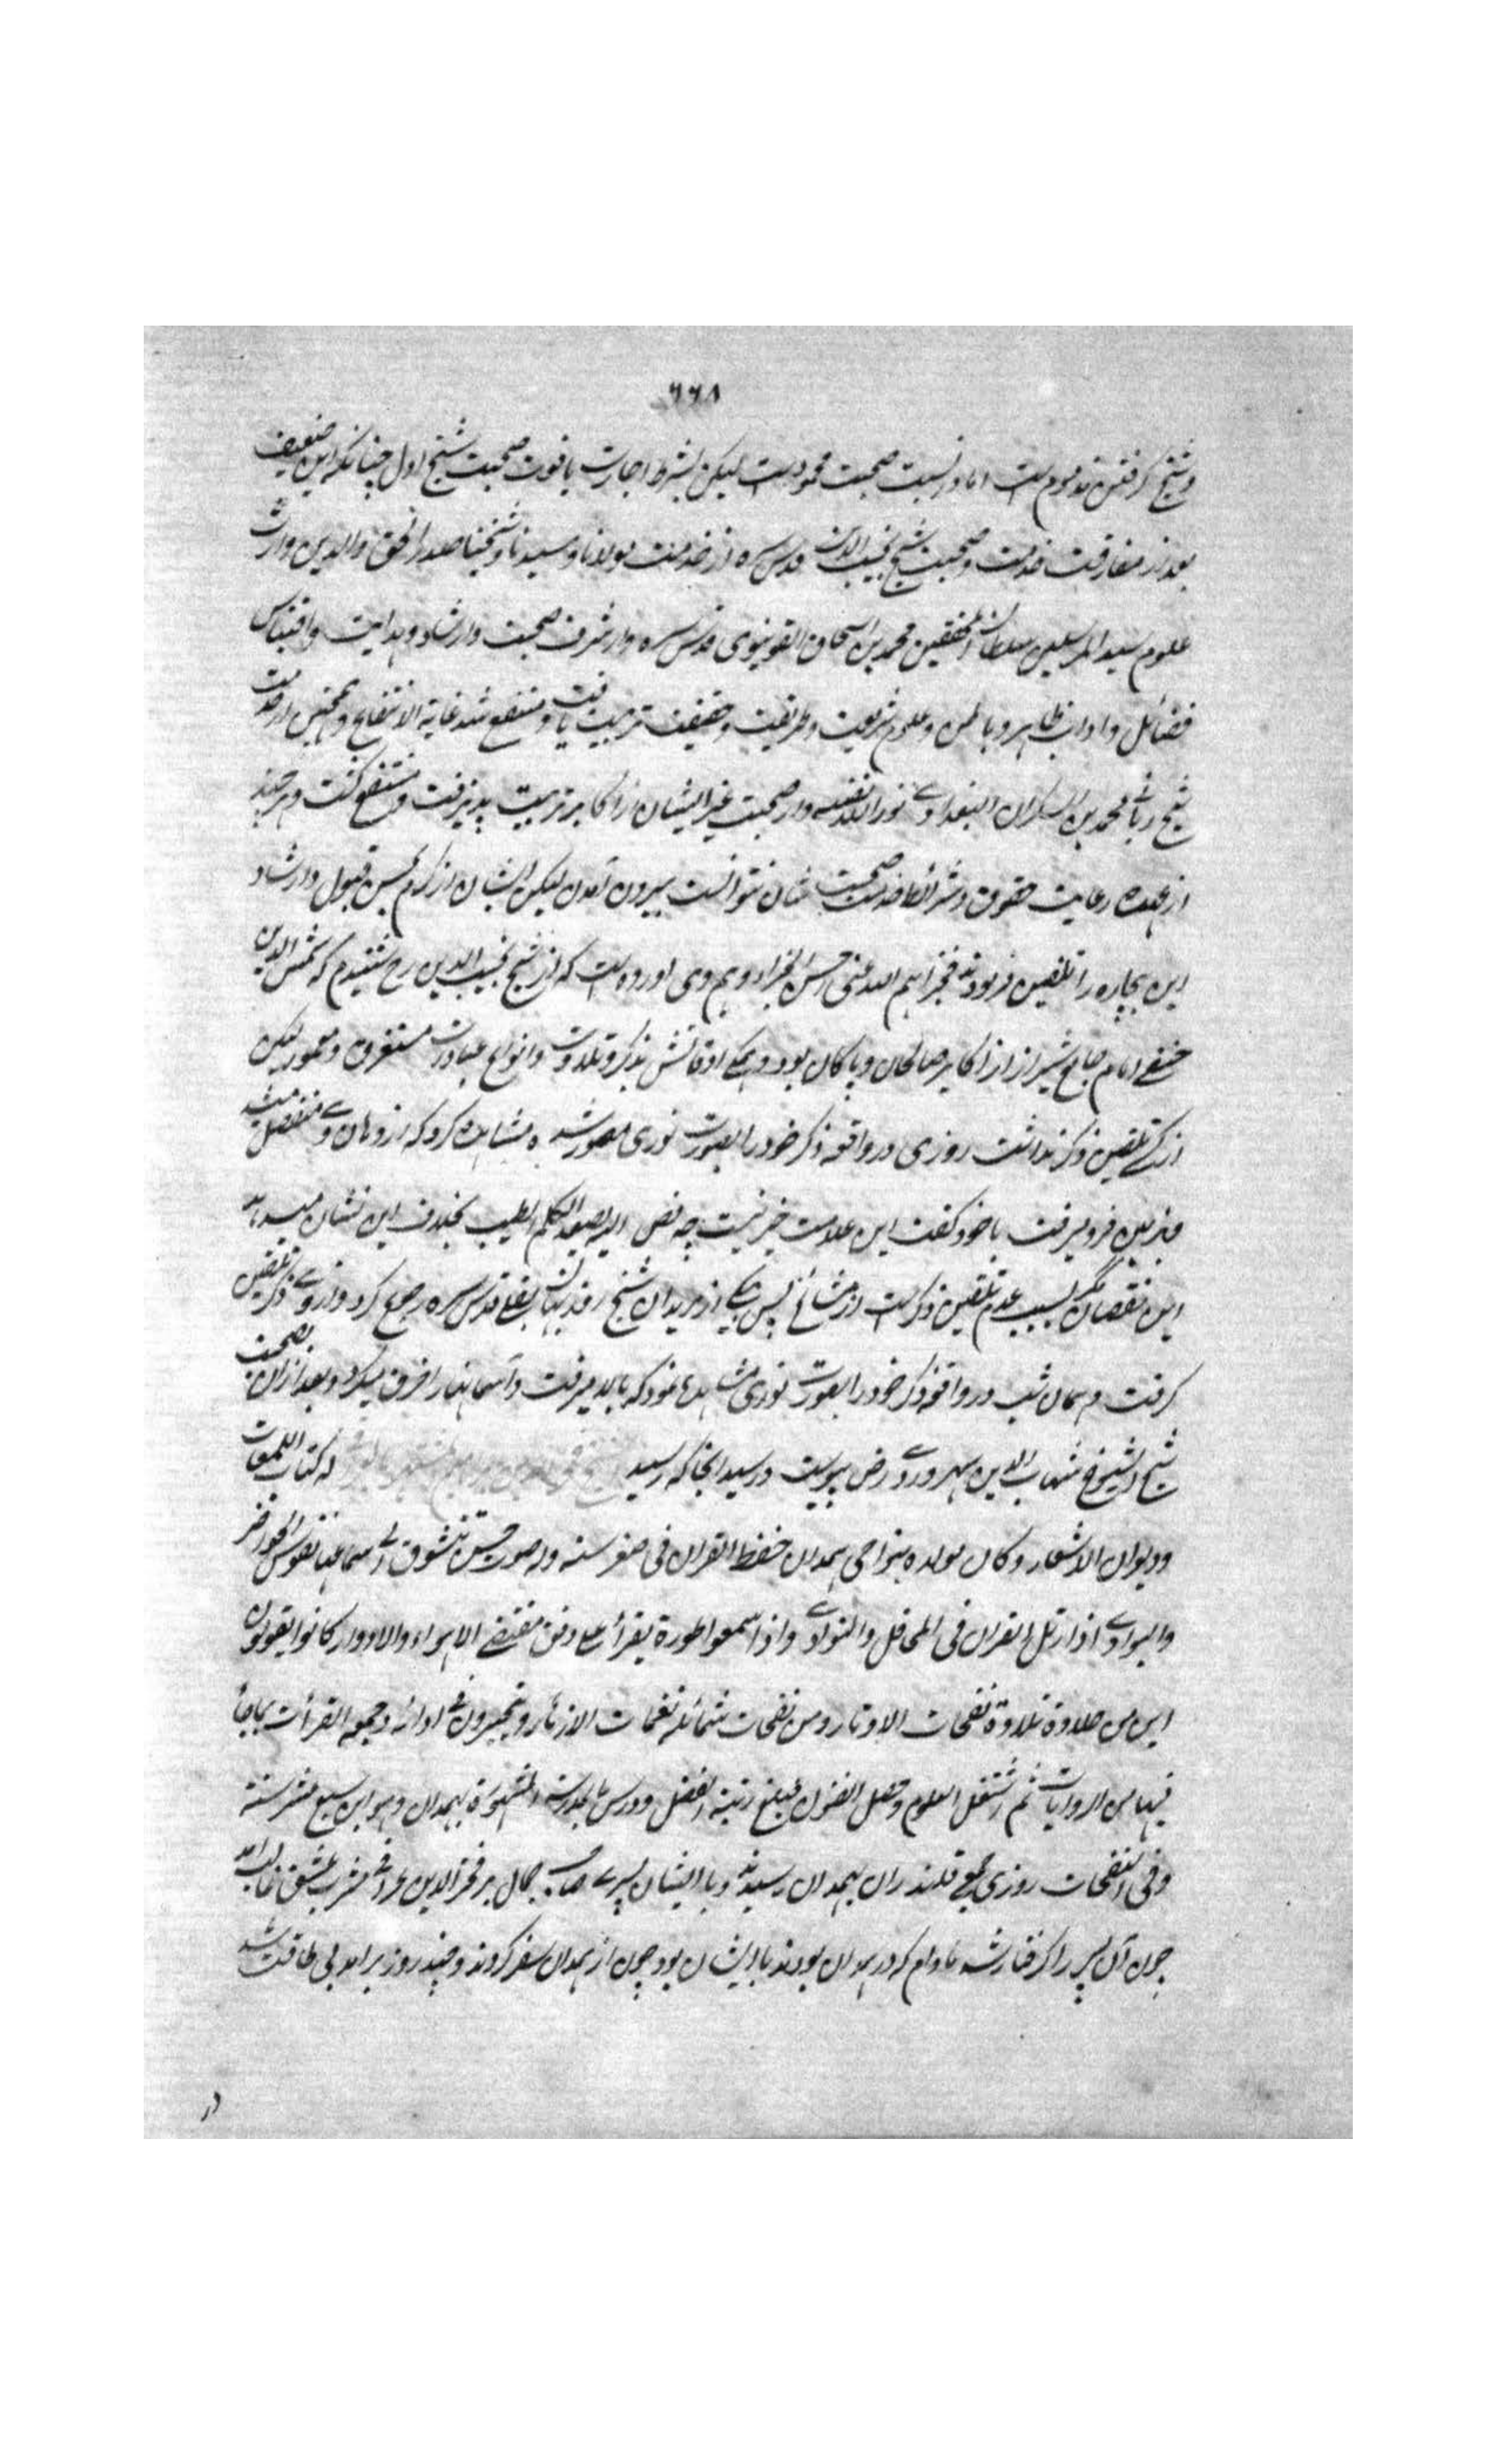 ٦٦٨
و شیخ گرفتن مذموم است اما در نسبت صحبت محمود است لیکن بشرط اجازت یا فوت صحبت شیخ اول چنانکه این ضعیف
بعد از مفارقت خدمت و صحبت شیخ نجیب الدین قدس سره از خدمت مولانا و سیدنا و شیخنا صدر الحق والدین وارث
علوم سید المرسلین سلطان المحققین محمد بن اسحاق القونیوی قدس سره و از شرف صحبت و ارشاد و هدایت و اقتباس
فضائل و اداب ظاهر و باطن و علوم شریعت و طریقت و حقیقت تربیت یافت و منتفع شد غایة الانتفاع و همچنین از خدمت
شیخ ربانی محمد بن السکران البغدادی نور الله نفسه و از صحبت غیر ایشان از اکابر تربیت پذیرفت و منتفع گشت و هر چند
از عهده رعایت حقوق و شرائط خدمت صحبت شان نتوانست بیرون آمدن لیکن ایشان از کرم بحسن قبول و ارشاد
این بیچاره را تلقین فرمودند فجزاهم الله عنی احسن الجزاء و هم وی اورده است که از شیخ نجیب الدین رح شنیدم که شمس الدین
صفی امام جامع شیراز از اکابر صالحان و پاکان بود و همگی اوقاتش بذکر و تلاوت و انواع عبادت مستغرق و معمور لیکن
از کسی تلقین ذکر نداشت روزی در واقعه ذکر خود را بصورت نوری مصور شده مشاهده کرد که از دهان وی منفصل میشد
و بزمین فرو میرفت با خود گفت این علامت خیر نیست چه نص الیه یصعد الکلم الطیب بخلاف این نشان میدهد
این نقصان مگر بسبب عدم تلقین ذکر است از مشائخ پس بیکی از مریدان شیخ روزبهان بقلی قدس سره رجوع کرد و از وی ذکر تلقین
گرفت و همان شب در واقعه ذکر خود را بصورت نوری مشاهده نمود که بالا میرفت و آسمانها را خرق میکرد و بعد از ان بصحبت
شیخ الشیوخ شهاب الدین سهروردی رض پیوست و رسید انجا که رسید له کتاب اللمعات
و دیوان الاشعار و کان مولده بنواحی همدان حفظ القران فی صغر سنه و له صوت حسن تتشوق الی سماعها نفوس الحواضر
والبوادی اذا رتل القران فی المحافل والنوادی و اذا سمعوا طوره یقرأ علی وفق مقتضی الاهواء والادوار کانوا یقولون
این من حلاوة تلاوة نفحات الاوتار و من نفحات شمائله نغمات الازهار و یتحیرون فی ادائه و جمعه القرأت بما جأ
فیها من الروایات ثم اشتغل العلوم و حصل الفنون فبلغ رتبة الفضل و درس بالمدرسة المشهورة بهمدان و هو ابن سبع عشر سنة
و فی النفحات روزی جمعی قلندران بهمدان رسیدند و با ایشان پسری صاحب جمال بر فخر الدین عراقی مشرب عشق غالب آمد
چون آن پسر را گرفتار شد مادام که در همدان بودند با ایشان بود چون از همدان سفر کردند و چند روز بر آمد بی طاقت شد
در